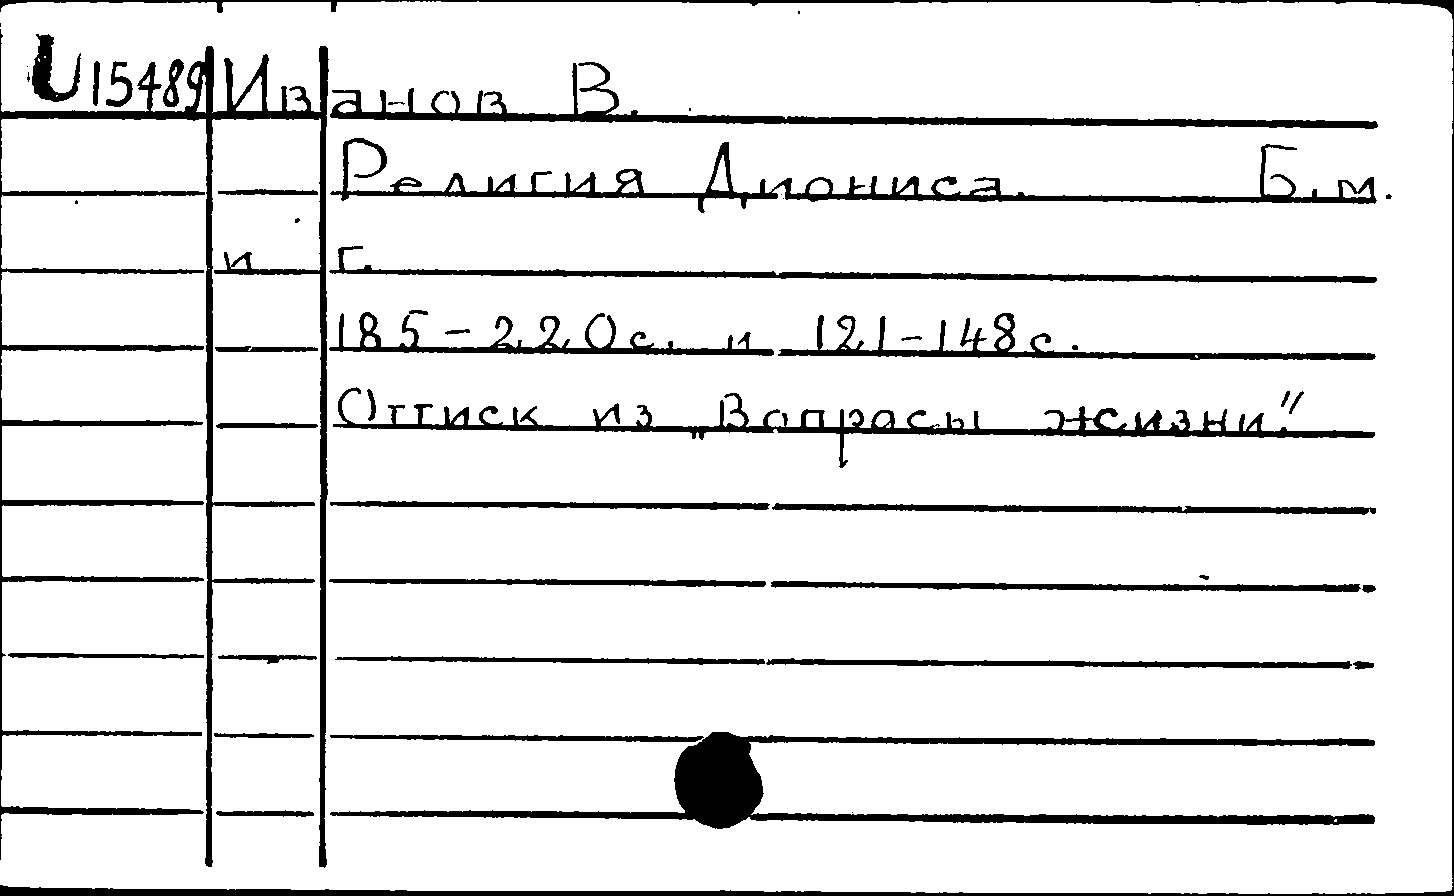 U15489 Иванов В.
Религия Диониса. Б.м.
и г.
185-220с. и 121-148с.
Оттиск из „Вопросы жизни."